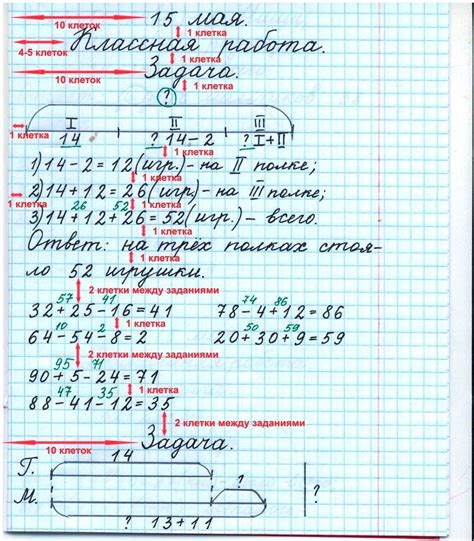 10 клеток 15 мая.
1 клетка
4-5 клеток Классная работа.
1 клетка
10 клеток Задача.
? 1 клетка
1 клетка I II III
14 ? 14-2 ? I+II
1) 14-2=12(игр.)- на II полке;
1 клетка
2) 14+12=26(игр.)- на III полке;
1 клетка 26 52 1 клетка
3) 14+12+26=52(игр.)- всего.
1 клетка
Ответ: на трёх полках стоя-
1 клетка
ло 52 игрушки.
2 клетки между заданиями
57 41 74 86
32+25-16=41 78-4+12=86
10 2 1 клетка 50 59
64-54-8=2 20+30+9=59
2 клетки между заданиями
95 71
90+5-24=71
47 35 1 клетка
88-41-12=35
2 клетки между заданиями
10 клеток Задача.
14
Г.
? ?
М.
? 13+11